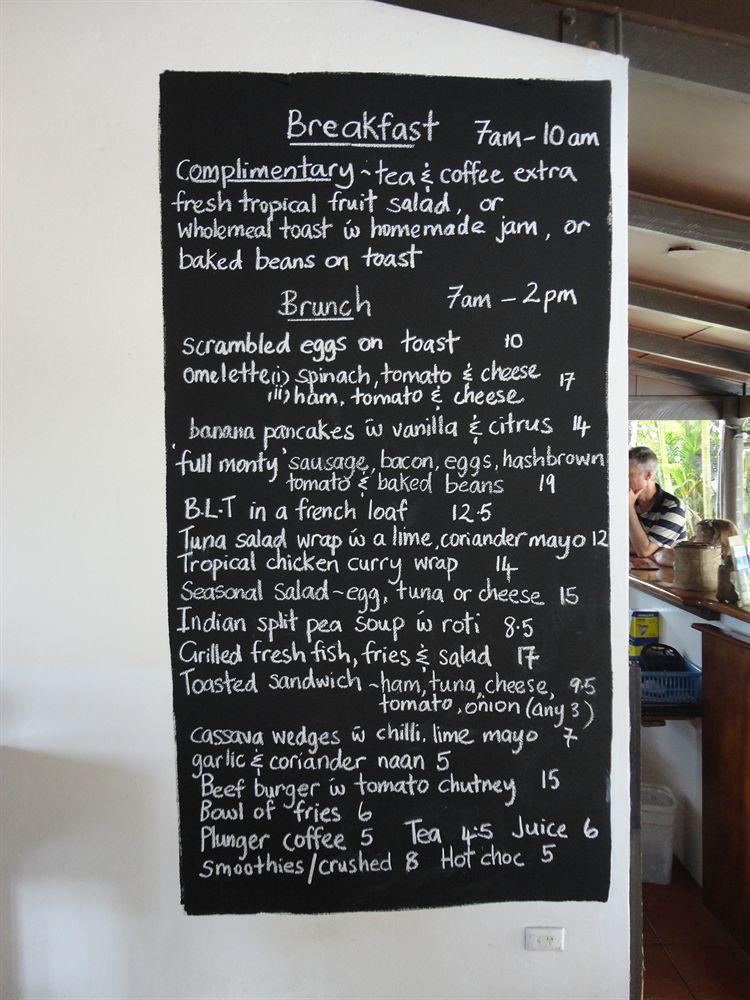 Breakfast 7am - 10am
Complimentary ~ tea & coffee extra
fresh tropical fruit salad, or
wholemeal toast w homemade jam, or
baked beans on toast
Brunch 7am - 2pm
scrambled eggs on toast 10
omelette (i) spinach, tomato & cheese 17
(ii) ham, tomato & cheese
banana pancakes w vanilla & citrus 14
'full monty' sausage, bacon, eggs, hashbrown
tomato & baked beans 19
B.L.T in a french loaf 12.5
Tuna salad wrap w a lime, coriander mayo 12
Tropical chicken curry wrap 14
Seasonal salad ~ egg, tuna or cheese 15
Indian split pea soup w roti 8.5
Grilled fresh fish, fries & salad 17
Toasted sandwich ~ ham, tuna, cheese, 9.5
tomato, onion (any 3)
cassava wedges w chilli, lime mayo 7
garlic & coriander naan 5
Beef burger w tomato chutney 15
Bowl of fries 6
Plunger coffee 5 Tea 4.5 Juice 6
smoothies/crushed 8 Hot choc 5